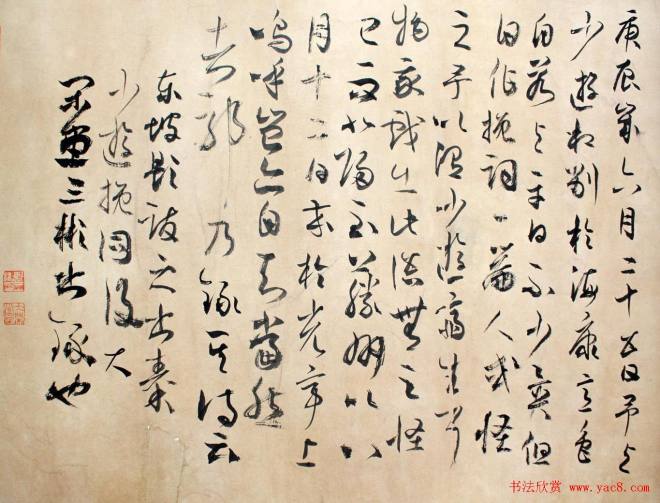 庚辰歲六月二十五日予与
少遊相別於海康意色
自若与平日不少異但
自作挽詞一篇人或怪
之予以謂少遊齊生
物我戲出此語無怪
已而北歸至藤州以八
月十二日卒於光亭上
嗚呼豈亦自知當然
者耶乃錄其詩云
東坡題跋之书秦
少遊挽詞後大
三彬书錄也
书法欣赏 www.yac8.com